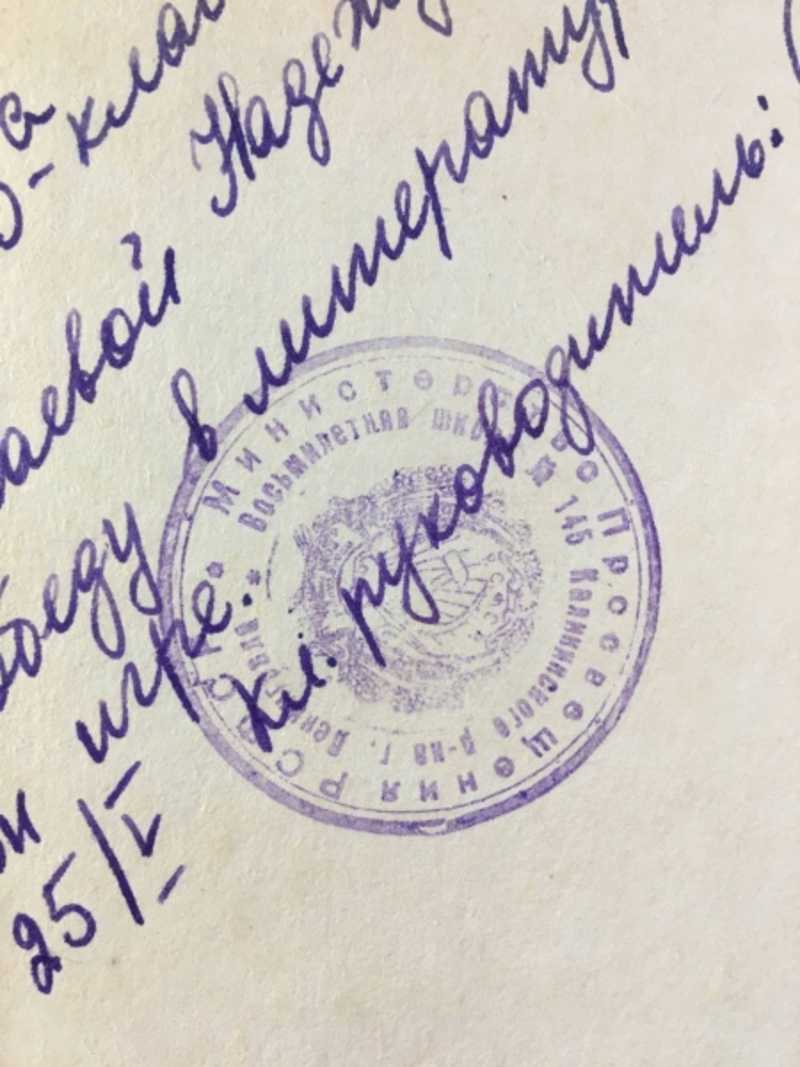 Надеж
аевой
в литерату
беду
ой игре.
Кл. руководитель:
25/V
Министерство Просвещения РСФСР
Восьмилетняя школа № 145 Калининского р-на г. Ленинграда